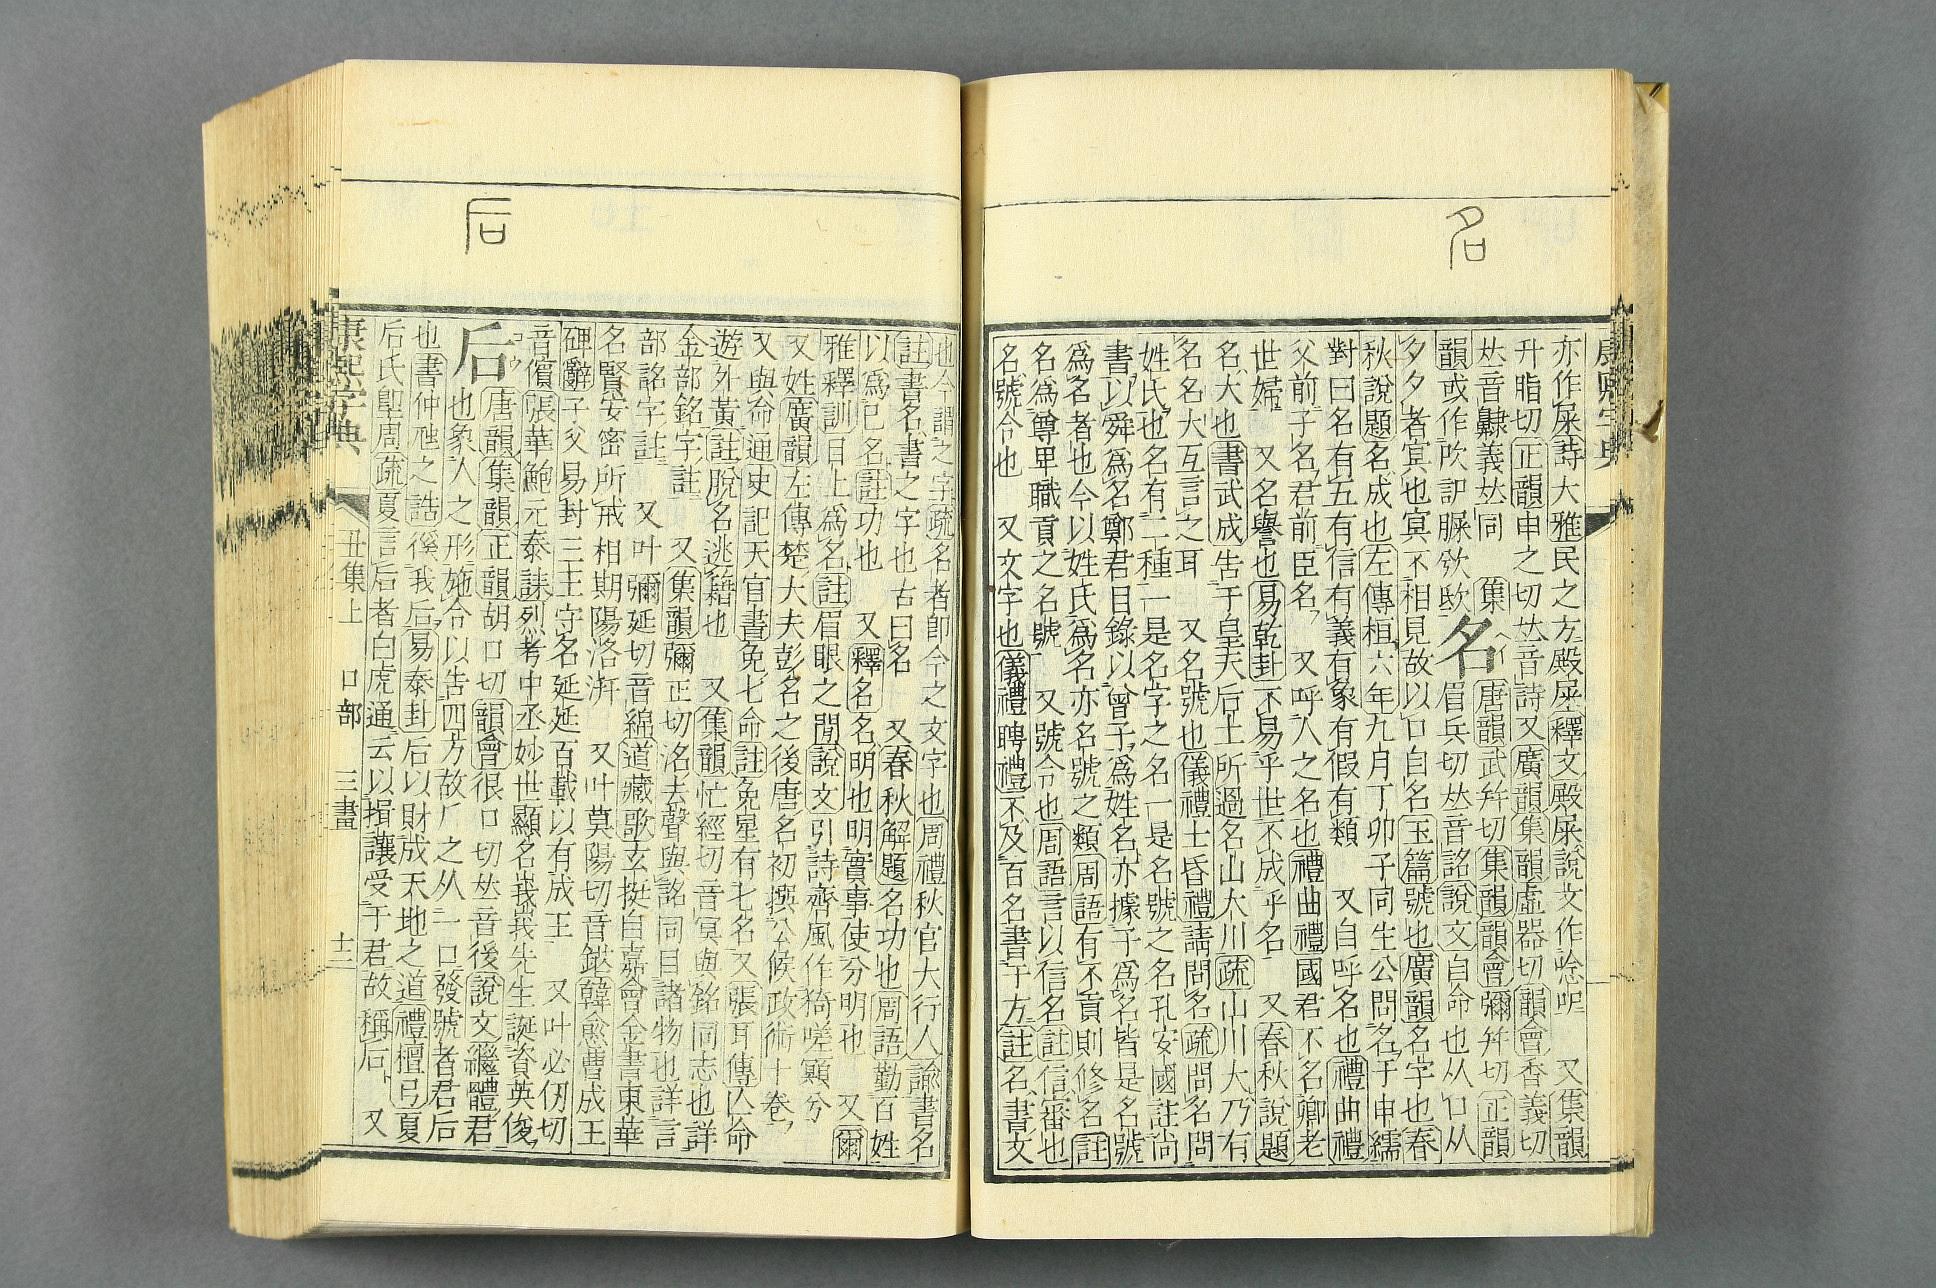 名
亦作屎詩大雅民之方殿屎釋文殿屎說文作唸㕧 又集韻
升脂切正韻申之切𠀤音詩又廣韻集韻虛器切韻會香義切
𠀤音齂義𠀤同 集
韻或作吹
名
唐韻武幷切集韻韻會彌幷切正韻
眉兵切𠀤音詺說文自命也从口从
夕夕者冥也冥不相見故以口自名玉篇號也廣韻名字也春
秋說題名成也左傳桓六年九月丁卯子同生公問名于申繻
對曰名有五有信有義有象有假有類 又自呼名也禮曲禮
父前子名君前臣名 又呼人之名也禮曲禮國君不名卿老
世婦 又名譽也易乾卦不易乎世不成乎名 又春秋說題
名大也書武成告于皇天后土所過名山大川疏山川大乃有
名名大互言之耳 又名號也儀禮士昏禮請問名疏問名問
姓氏也名有二種一是名字之名一是名號之名孔安國註尚
書以舜爲名鄭君目錄以曾子爲姓名亦據子爲名皆是名號
爲名者也今以姓氏爲名亦名號之類周語有不貢則修名註
名爲尊卑職貢之名號 又號令也周語言以信名註信審也
名號令也 又文字也儀禮聘禮不及百名書于方註名書文
后
也今謂之字疏名者卽今之文字也周禮秋官大行人諭書名
註書名書之字也古曰名 又春秋解題名功也周語勤百姓
以爲己名註功也 又釋名名明也明實事使分明也 又爾
雅釋訓目上爲名註眉眼之閒說文引詩齊風作猗嗟顮兮
又姓廣韻左傳楚大夫彭名之後唐名初撰公侯政術十卷
又與命通史記天官書免七命註免星有七名又張耳傳亡命
遊外黃註脫名逃籍也 又集韻忙經切音冥與銘同志也詳
金部銘字註 又集韻彌正切洺去聲與詺同目諸物也詳言
部詺字註 又叶彌延切音綿道藏歌玄挺自嘉會金書東華
名賢安密所戒相期陽洛汧 又叶莫陽切音鋩韓愈曹成王
碑辭子父易封三王守名延延百載以有成王 又叶必仞切
音儐張華鮑元泰誄烈考中丞妙世顯名峩峩先生誕資英俊
后
唐韻集韻正韻胡口切韻會很口切𠀤音後說文繼體君
也象人之形施令以告四方故𠂆之从一口發號者君后
也書仲虺之誥徯我后易泰卦后以財成天地之道禮檀弓夏
后氏堲周疏夏言后者白虎通云以揖讓受于君故稱后 又
康熙字典
丑集上 口部 三畫 十三